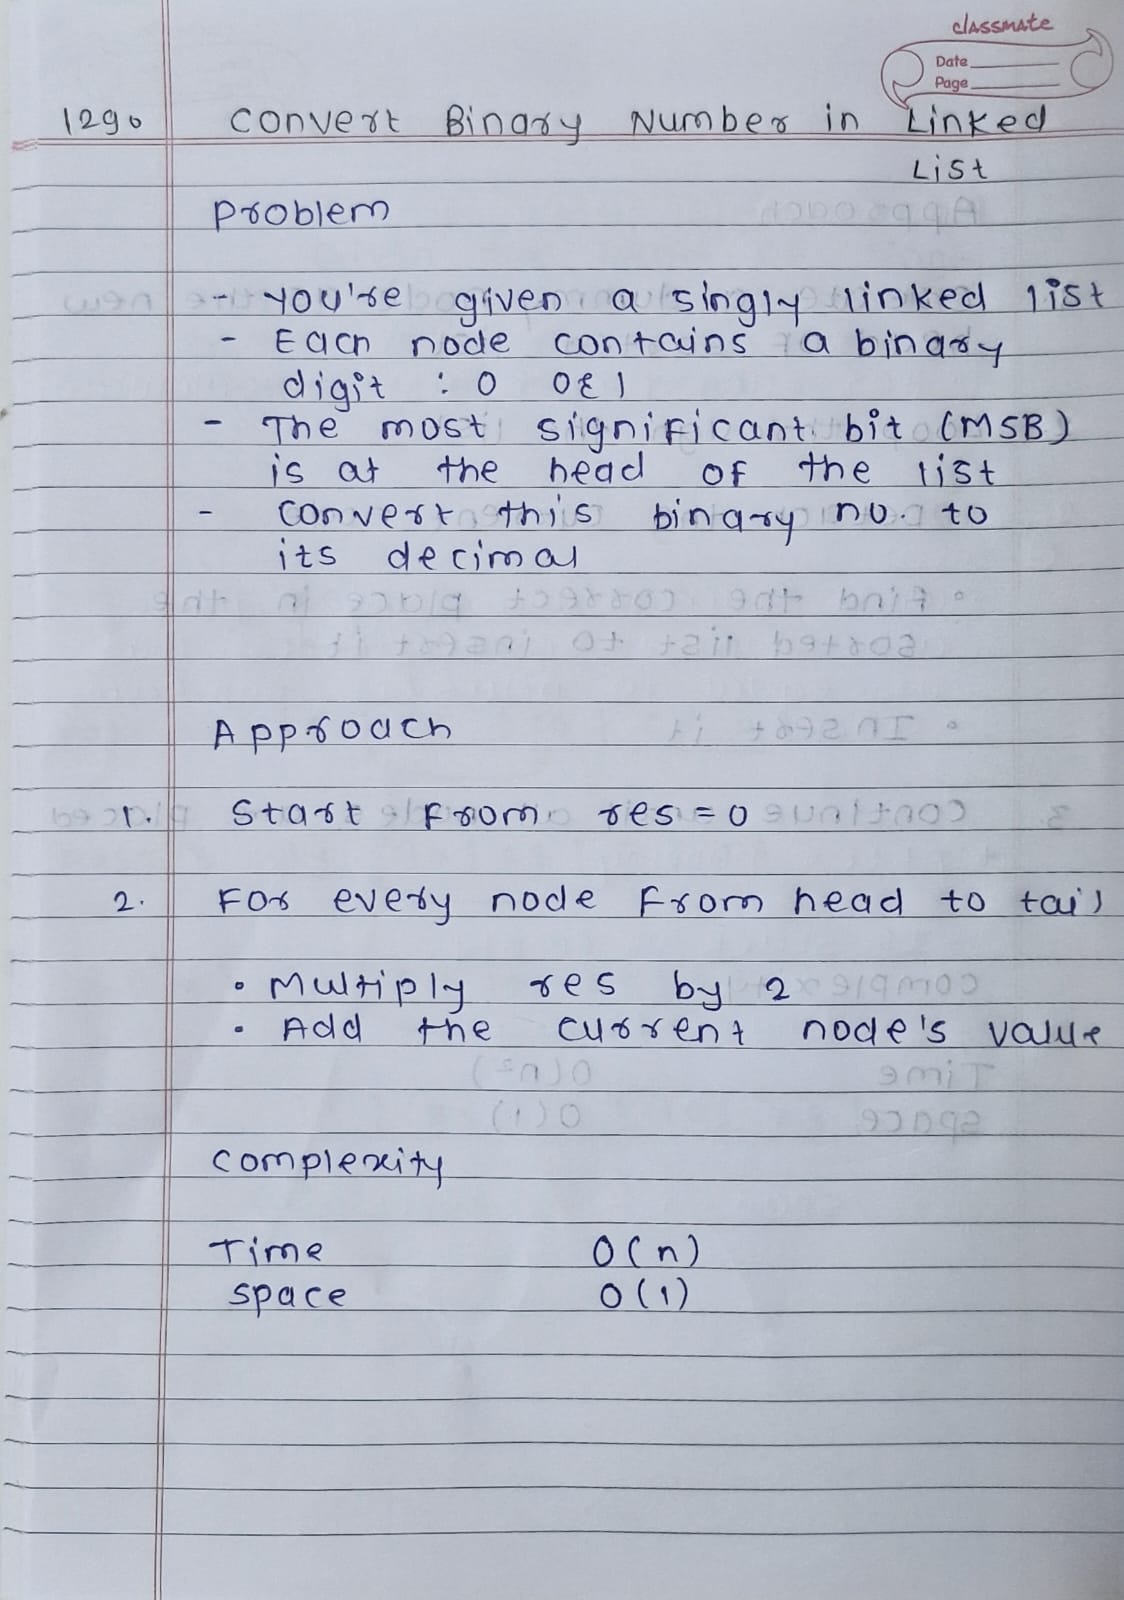 classmate
Date
Page
1290 Convert Binary Number in Linked
List
Problem
- You're given a singly linked list
- Each node contains a binary
digit : 0 OR 1
- The most significant bit (MSB)
is at the head of the list
- Convert this binary no. to
its decimal
Approach
1. Start from res = 0
2. For every node from head to tail
• Multiply res by 2
• Add the current node's value
Complexity
Time O(n)
Space O(1)